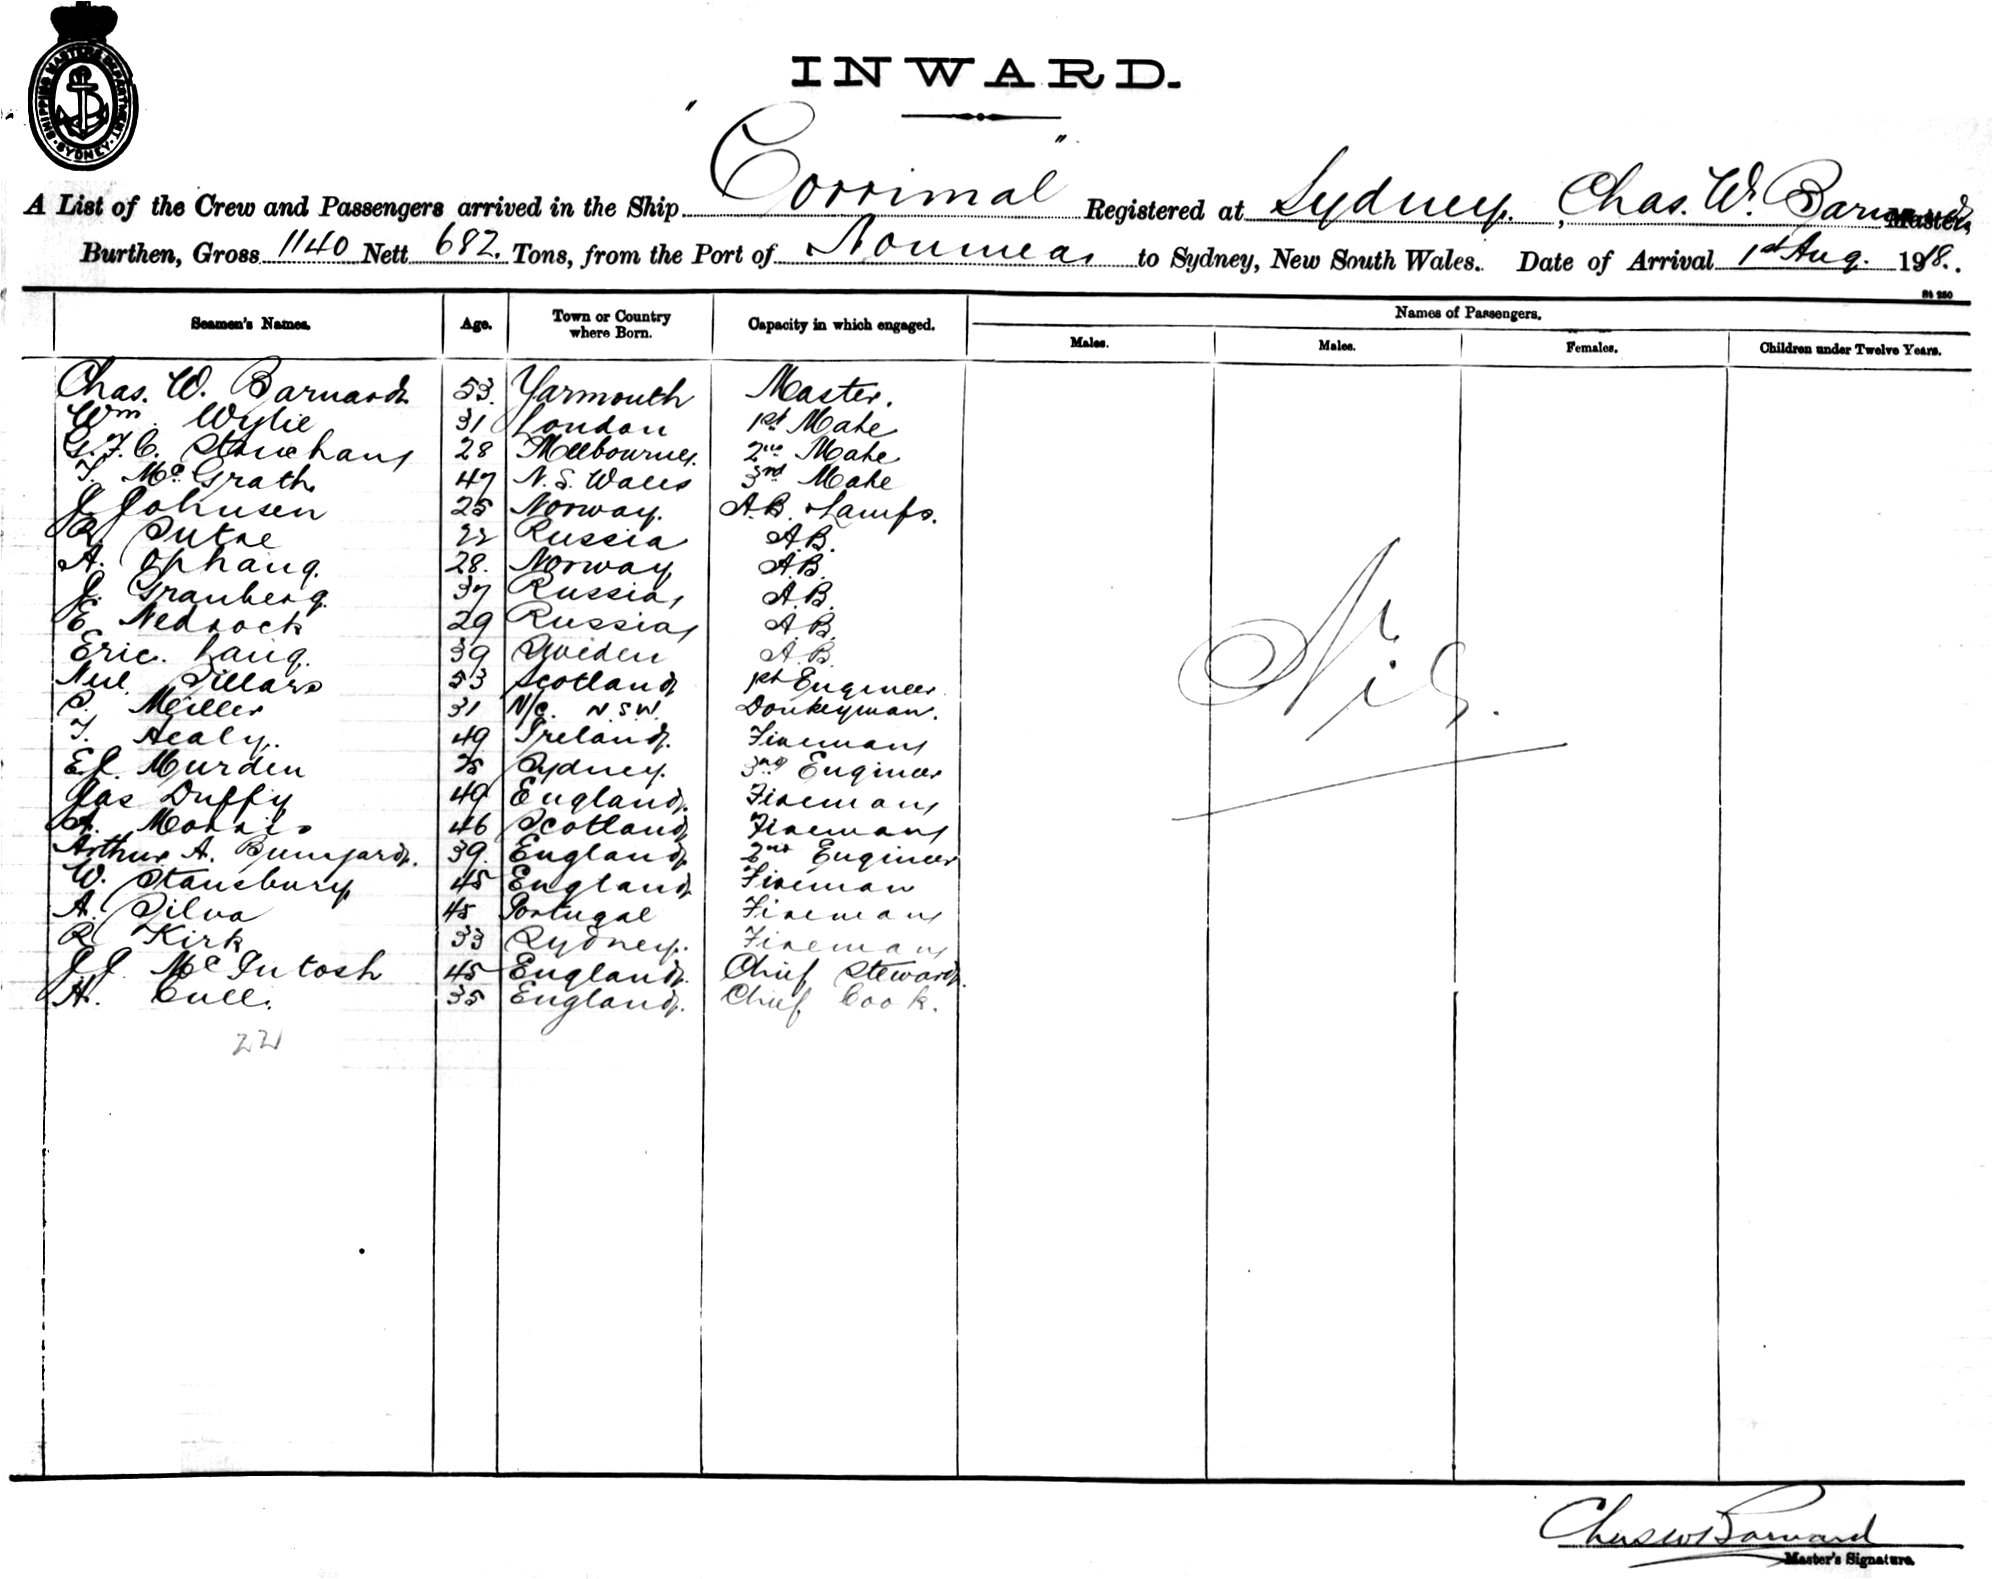 SHIPPING MASTERS DEPARTMENT SYDNEY
INWARD.
A List of the Crew and Passengers arrived in the Ship "Corrimal" Registered at Sydney, Chas. W. Barnard Master,
Burthen, Gross 1140 Nett 682. Tons, from the Port of Noumea to Sydney, New South Wales. Date of Arrival 1st Aug. 1918.
St 250
Seamen's Names. Age. Town or Country where Born. Capacity in which engaged. Names of Passengers.
Males. Males. Females. Children under Twelve Years.
Chas. W. Barnard 53. Yarmouth Master.
Wm. Wylie 31 London 1st Mate
G.F.C. 28 Melbourne. 2nd Mate
T. McGrath 47 N. S. Wales 3rd Mate
J Johnsen 25 Norway. A.B. & Lamps.
R. 22 Russia A.B.
A. Ophaug. 28. Norway A.B.
J. Granberg. 37 Russia A.B.
E Nedrock 29 Russia A.B.
Eric. Lang. 39 Sweden A.B.
Neil Sillars 53 Scotland 1st Engineer
Miller 31 N/C. N.S.W. Donkeyman.
T. Healy. 49 Ireland. Fireman
E.J. Murden 25 Sydney. 3rd Engineer
Jas Duffy 49 England. Fireman
A. Morris 46 Scotland Fireman
Arthur A. 39. England 2nd Engineer
W. Stansbury 45 England Fireman
A. Silva 45 Portugal Fireman
R Kirk 33 Sydney. Fireman
J.J. McIntosh 45 England. Chief Steward.
H. Cull. 35 England. Chief Cook.
22
Nil.
Chas W Barnard
Master's Signature.